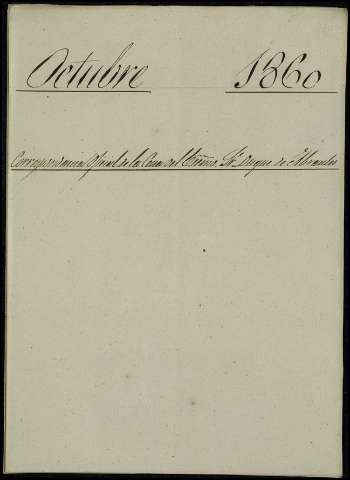 Octubre 1860
Correspondencia Oficial de la Casa del Excmo. Sr. Duque de Abrantes